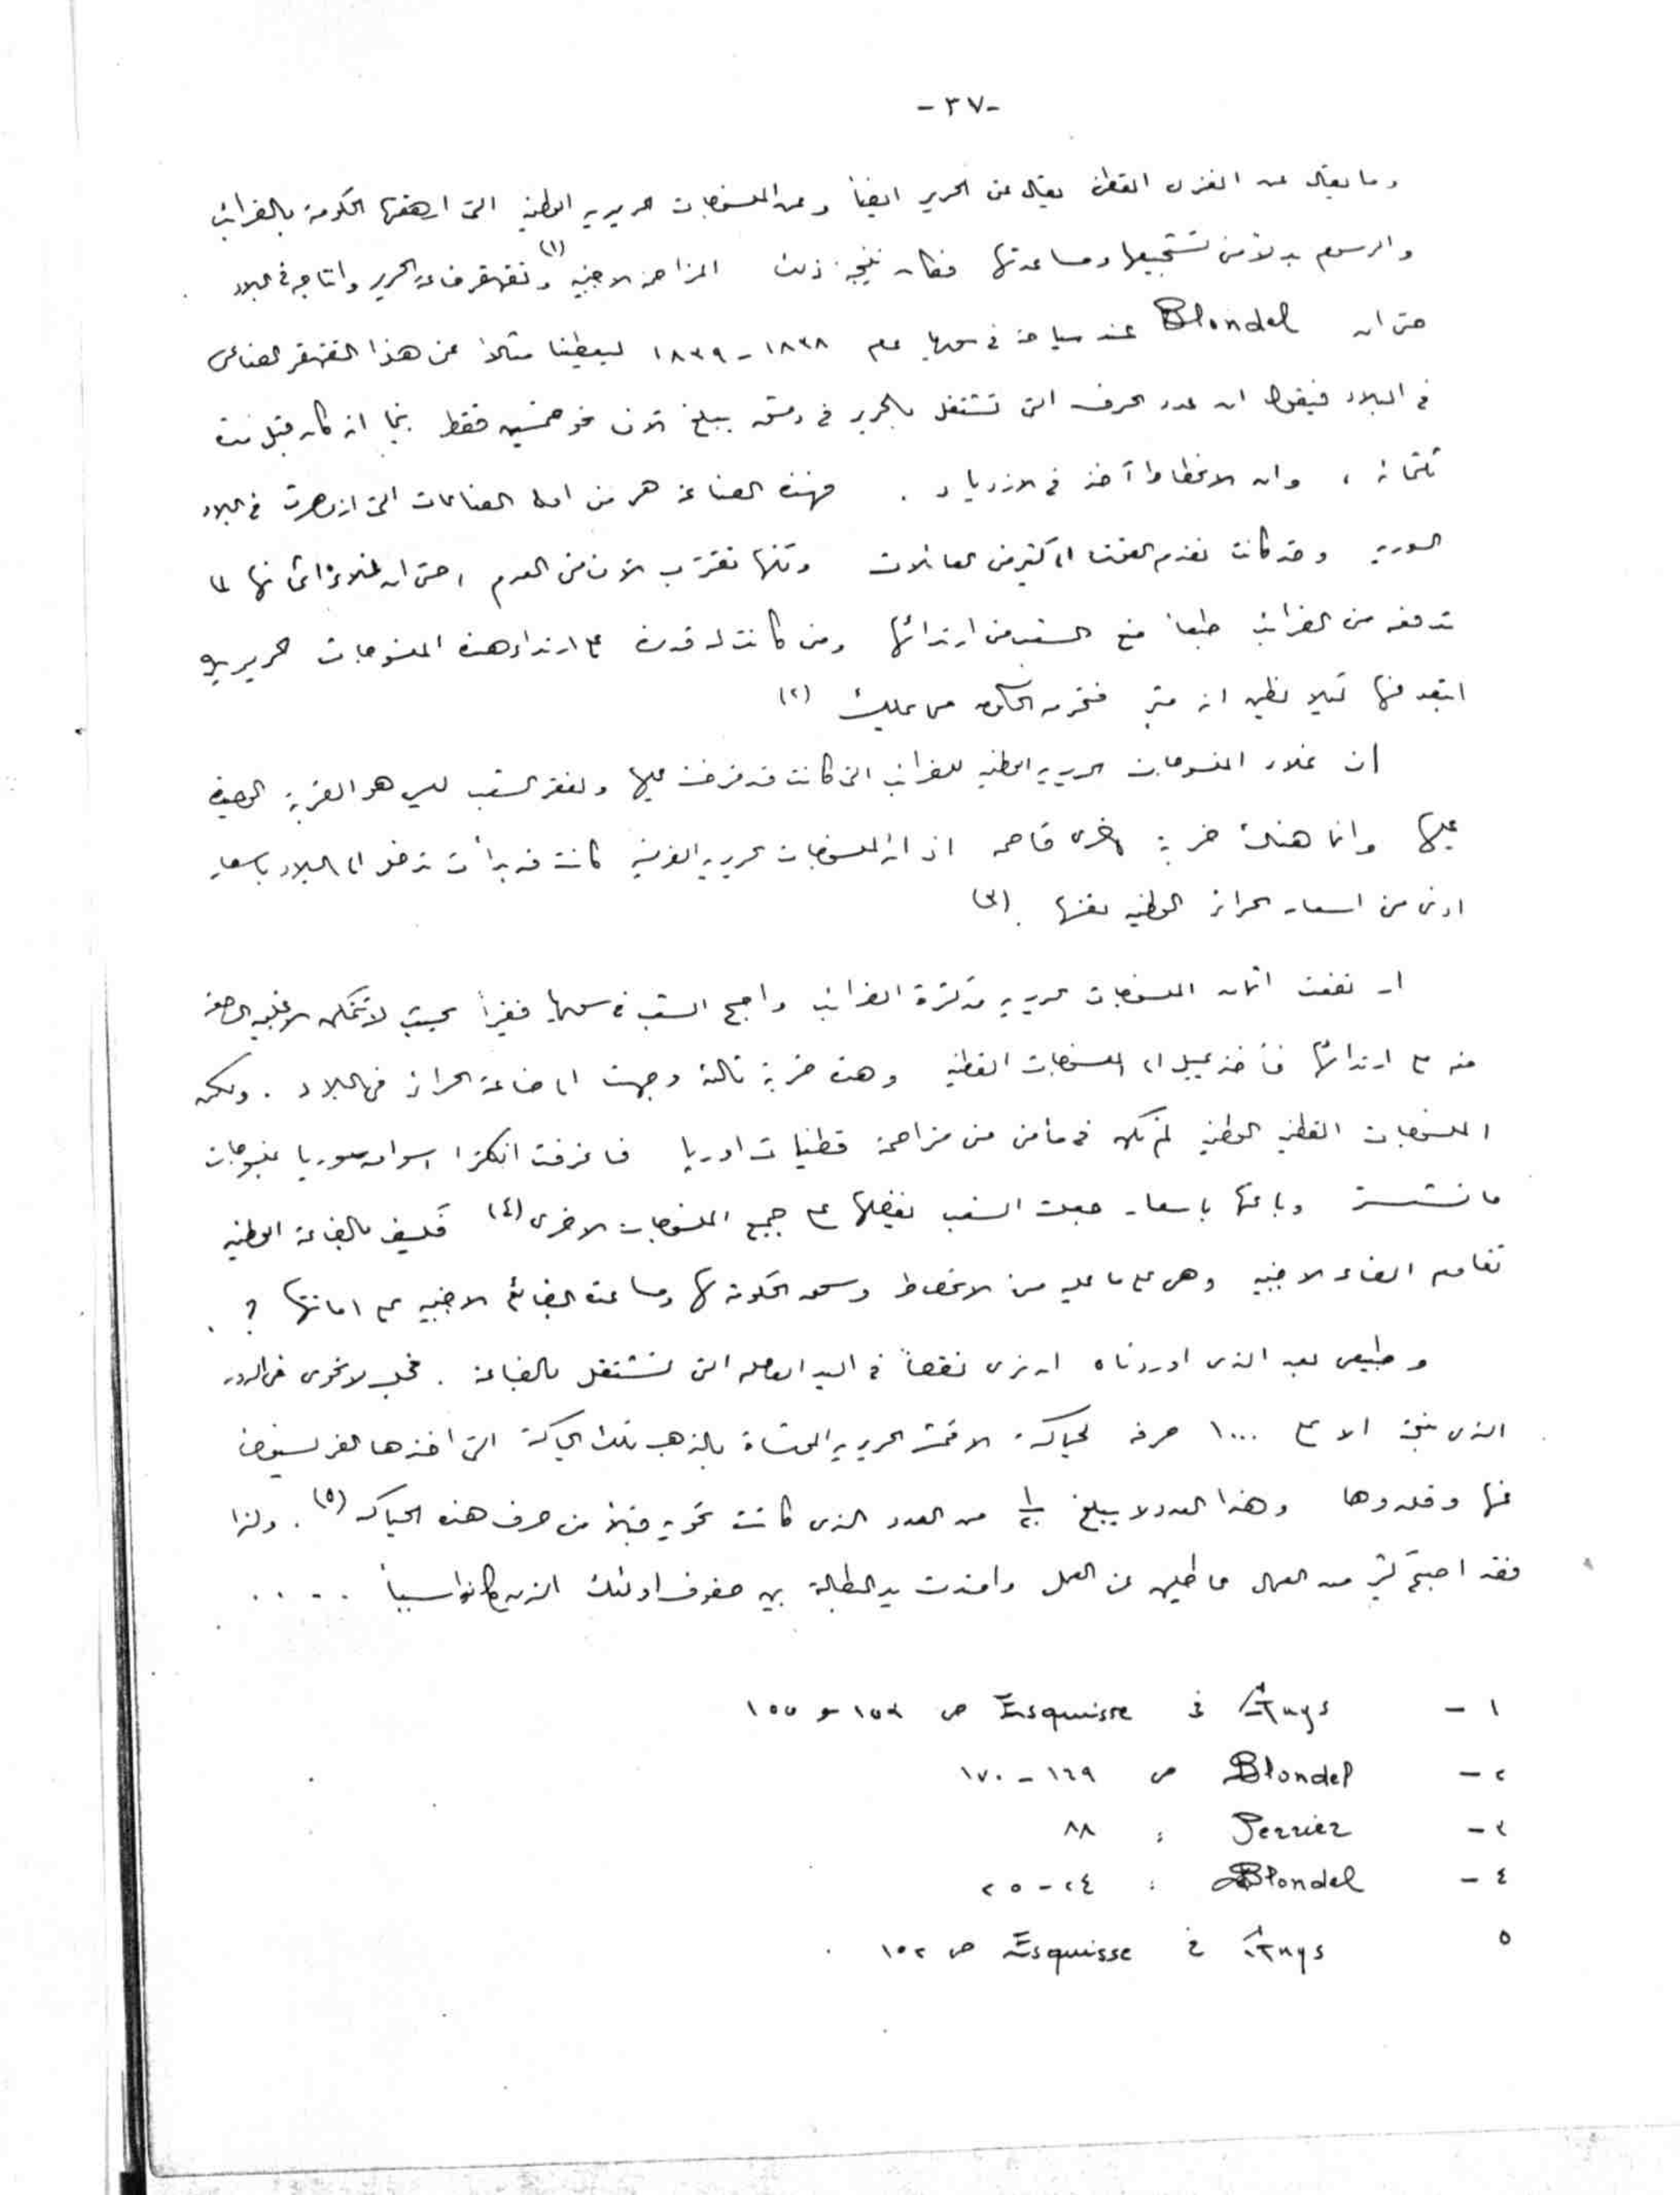 -٣٧-
وما يقال عن الغزل القطني يقال عن الحرير ايضاً وعن المنسوجات الحريرية الوطنية التي ارهقتها الحكومة بالضرائب
والرسوم بدلاً من تشجيعها ومساعدتها فكان نتيجة ذلك المزاحمة الاجنبية (١) وتقهقر صناعة الحرير وانتاجه في البلاد .
حتى ان Blondel عند سياحته في سوريا عام ١٨٣٨ - ١٨٣٩ ليعطينا مثالاً عن هذا التقهقر الصناعي
في البلاد فيقول ان عدد الحرف التي تشتغل بالحرير في دمشق يبلغ الآن نحو خمسين فقط بينما انه كان قبل مدة
ثلثمائة ، وان الانحطاط آخذ في الازدياد . فهذه الصناعة هي من اولى الصناعات التي ازدهرت في البلاد
السورية وقد كانت تقدم القوت الى كثير من العائلات ولكنها تقترب الآن من العدم ، حتى ان غلاء اثمانها لما
تدفعه من الضرائب طبعاً منع الشعب من ارتدائها ومن كانت له قدرة على ارتداء هذه المنسوجات الحريرية
ابتعد عنها لئلا يظهر انه مثر فتحرمه الحكومة من املاكه (٢)
ان غلاء المنسوجات الحريرية الوطنية للضرائب التي كانت قد فرضت عليها ولفقر الشعب ليس هو الضربة الوحيدة
عليها وانما هناك ضربة اخرى قاصمة اذ ان المنسوجات الحريرية الفرنسية كانت قد بدأت تدخل الى البلاد باسعار
ادنى من اسعار الحرائر الوطنية نفسها . (٣)
ارتفعت اثمان المنسوجات الحريرية من كثرة الضرائب واصبح الشعب في سوريا فقيراً بحيث لا تتمكن الاغلبية
منه على ارتدائها فأخذ يميل الى المنسوجات القطنية وهذه ضربة ثالثة وجهت الى صناعة الحرائر في البلاد . ولكن
المنسوجات القطنية الوطنية لم تكن في مأمن من مزاحمة قطنيات اوربا فاغرقت انكلترا اسواق سوريا بمنسوجات
مانشستر وباعتها باسعار جعلت الشعب يفضلها على جميع المنسوجات الاخرى (٤) فكيف بالصناعة الوطنية
تقاوم الصناعة الاجنبية وهي على ما عليه من الانحطاط وسحق الحكومة لها ومساعدة البضائع الاجنبية على اماتتها ؟ .
وطبيعي بعد الذي اوردناه ان نرى نقصاً في اليد العاملة التي تشتغل بالصناعة . فحلب لا تحوي في الدور
الذي نبحثه الا على ١٠٠٠ حرفة لحياكة الاقمشة الحريرية الموشاة بالذهب تلك الحياكة التي اخذها الفرنسيون
عنها وقلدوها وهذا العدد لا يبلغ من العدد الذي كانت تحويه قبلاً من حرف هذه الحياكة (٥) . ولذا
فقد اصبح كثير من العمال عاطلين عن العمل وامتدت يد البطالة بين صفوف اولئك الذين كانوا سبباً . . . .
١ - Guys في Esquisse ص ١٥٤ و ١٥٥
٢ - Blondel ص ١٦٩ - ١٧٠
٣ - Perrier : ٨٨
٤ - Blondel : ٢٤ - ٢٥
٥ Guys في Esquisse ص ١٥٢ .